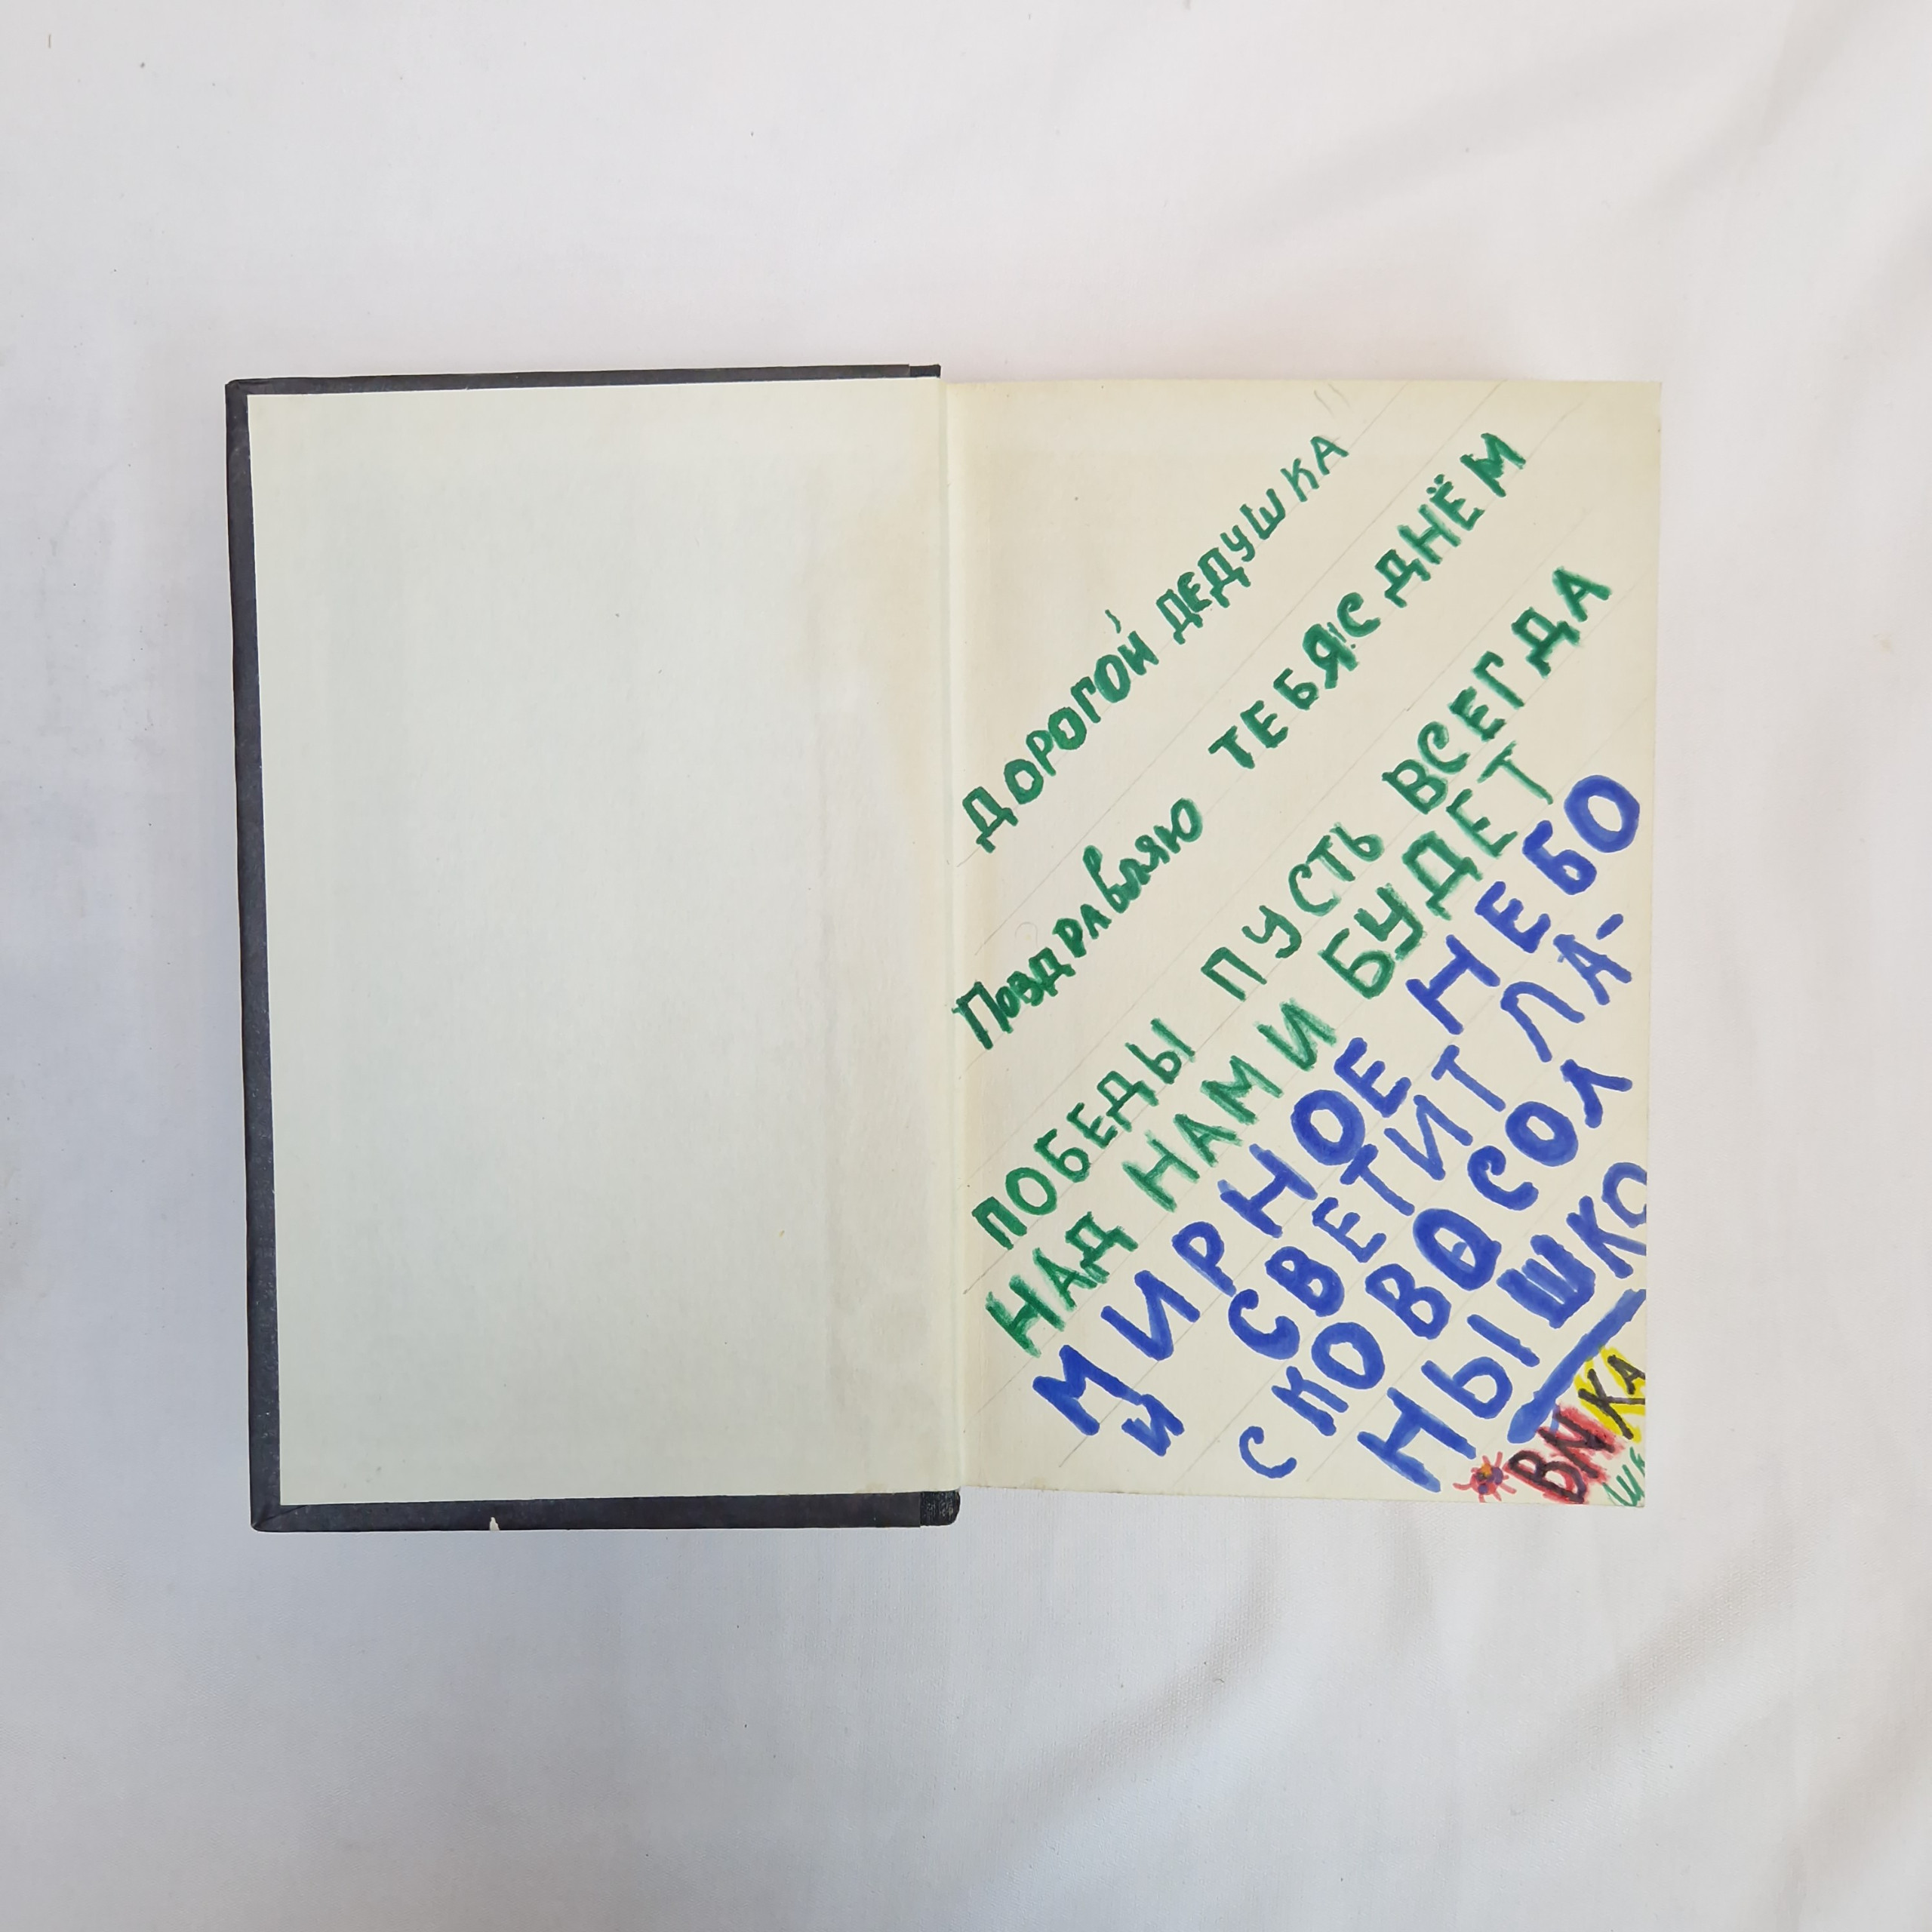 ДОРОГОЙ ДЕДУШКА
ПоздРАвляю ТЕБЯ С ДНЁМ
ПОБЕДЫ ПУСТЬ ВСЕГДА
НАД НАМИ БУДЕТ
МИРНОЕ НЕБО
И СВЕТИТ ЛА-
СКОВО СОЛ
НЫШКО
ВИКА